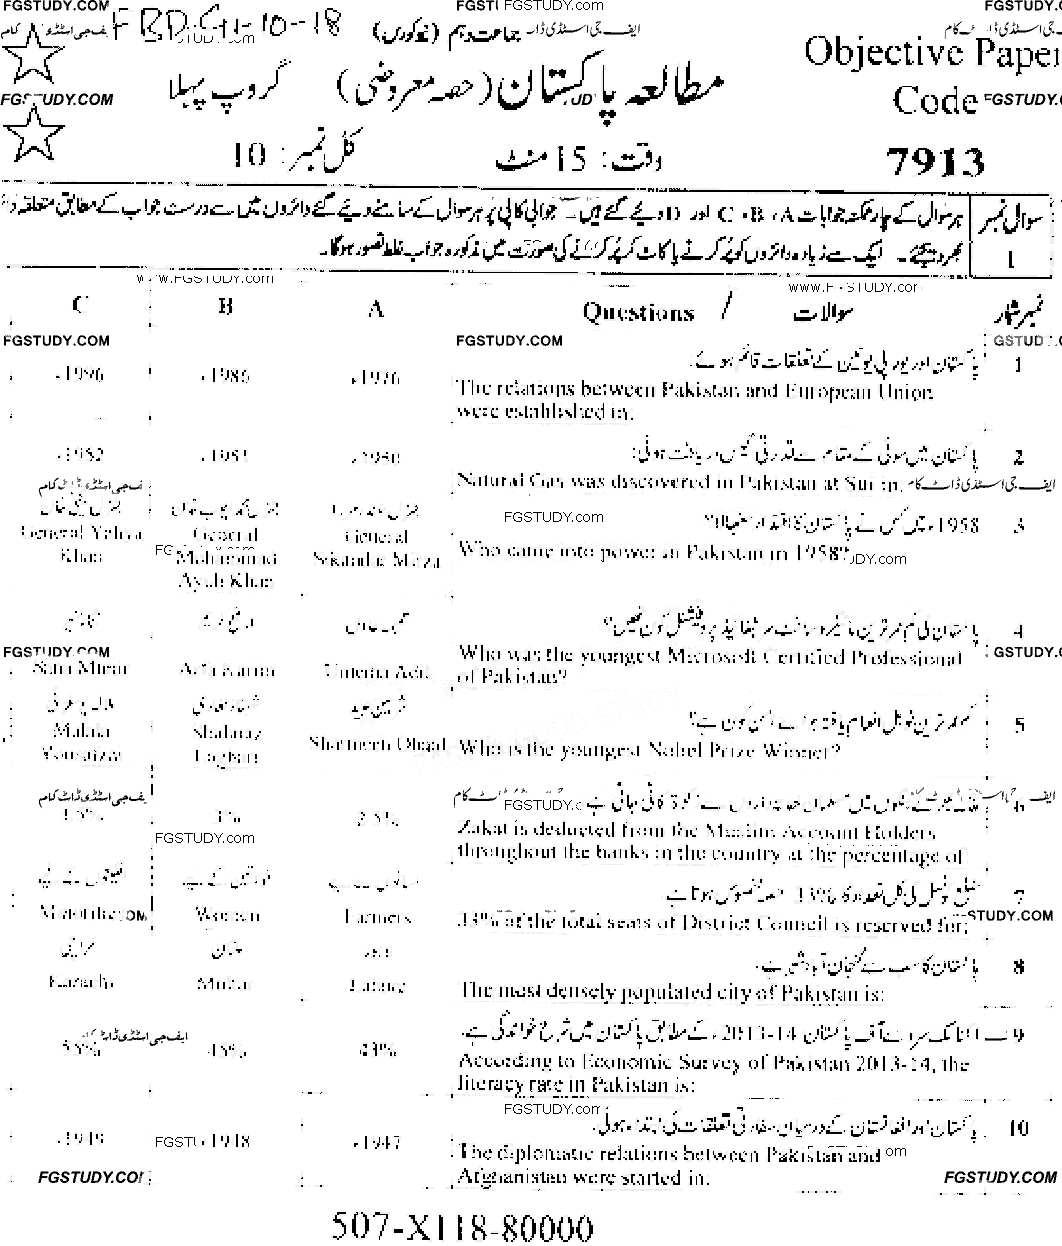 FGSTUDY.COM
FBD-G1-10-18
FGSTUDY.com
FGSTUDY.COM
جماعت دہم
ایف جی اسٹڈی ڈاٹ کام
Objective Paper
مطالعہ پاکستان (حصہ معروضی) گروپ پہلا
Code
FGSTUDY.COM
وقت: 15 منٹ کل نمبر: 10
7913
سوال نمبر 1
ہر سوال کے چار ممکنہ جوابات A، B، C اور D دیئے گئے ہیں۔ جوابی کاپی پر ہر سوال کے سامنے دیئے گئے دائروں میں سے درست جواب کے مطابق متعلقہ
بھر دیجئے۔ ایک سے زیادہ دائروں کو پُر کرنے یا کاٹ کر پُر کرنے کی صورت میں مذکورہ جواب غلط تصور ہوگا۔
WWW.FGSTUDY.com
نمبر شمار سوالات / Questions A B C
FGSTUDY.COM
1 پاکستان اور یورپی یونین کے تعلقات قائم ہوئے۔
The relations between Pakistan and European Union
were established in:
1976ء 1986ء 1996ء
2 پاکستان میں سوئی کے مقام سے قدرتی گیس دریافت ہوئی:
Natural Gas was discovered in Pakistan at Sui in:
1950ء 1951ء 1952ء
ایف جی اسٹڈی ڈاٹ کام
3 1958ء میں کس نے پاکستان کا اقتدار سنبھالا؟
Who came into power in Pakistan in 1958?
General
Sikandar Mirza
جنرل محمد ایوب خاں
General
Muhammad
Ayub Khan
جنرل یحییٰ خاں
General Yahya
Khan
FGSTUDY.com
4 پاکستان کی کم عمر ترین مائیکروسافٹ سرٹیفائیڈ پروفیشنل کون تھیں؟
Who was the youngest Microsoft Certified Professional
of Pakistan?
Arfa Karim
FGSTUDY.COM
5 کم عمر ترین نوبل انعام یافتہ ہونے والی کون ہے؟
Who is the youngest Nobel Prize Winner?
شرمین عبید
Sharmeen Obaid
شہناز لغاری
Shahnaz
Laghari
ملالہ یوسفزئی
Malala
Yousafzai
6
Zakat is deducted from the Muslim Account Holders
throughout the banks in the country at the percentage of
2.5%
FGSTUDY.com
7 ضلع کونسل کی کل تعداد کا 33% حصہ مخصوص ہوتا ہے
33% of the total seats of District Council is reserved for:
کسانوں کے لیے
Farmers
عورتوں کے لیے
Women
اقلیتوں کے لیے
Minorities
8 پاکستان کا سب سے گنجان آباد شہر ہے۔
The most densely populated city of Pakistan is:
لاہور
Lahore
ملتان
Multan
کراچی
Karachi
9 اکنامک سروے آف پاکستان 14-2013ء کے مطابق پاکستان میں شرح خواندگی ہے۔
According to Economic Survey of Pakistan 2013-14, the
literacy rate in Pakistan is:
45% 55%
ایف جی اسٹڈی ڈاٹ کام
FGSTUDY.com
10 پاکستان اور افغانستان کے درمیان سفارتی تعلقات کی ابتداء ہوئی۔
The diplomatic relations between Pakistan and
Afghanistan were started in:
1947ء 1948ء 1949ء
FGSTUDY.COM
FGSTUDY.COM
507-X118-80000